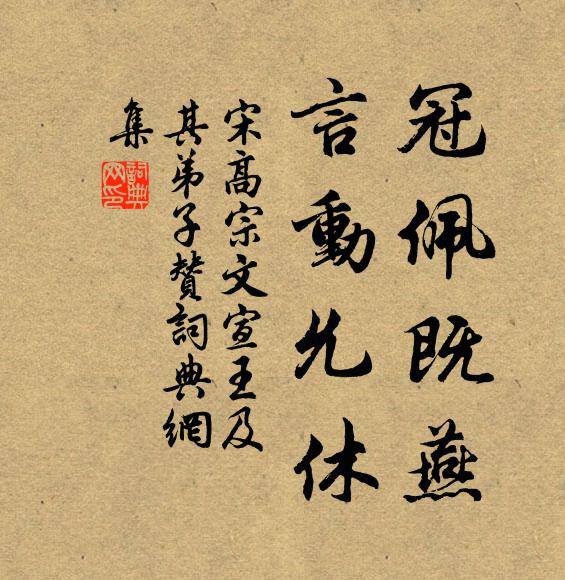 冠佩既燕
言動允休
宋高宗文宣王及
其弟子賛詞典網
集
詞典網印